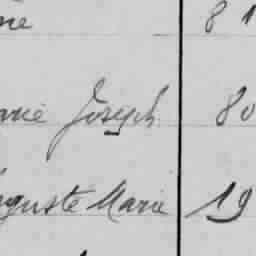 ne 81
rie Joseph 80
guste Marie 19